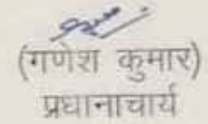 (गणेश कुमार)
प्रधानाचार्य